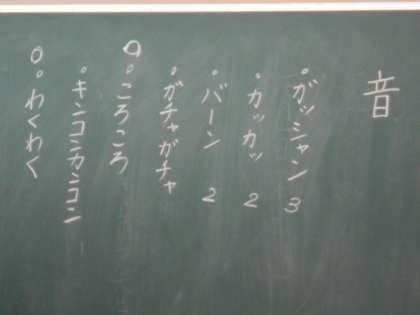 音
・ガッシャン 3
・カッカッ 2
・バーン 2
・ガチャガチャ
○・ころころ
・キンコンカンコン
○・わくわく